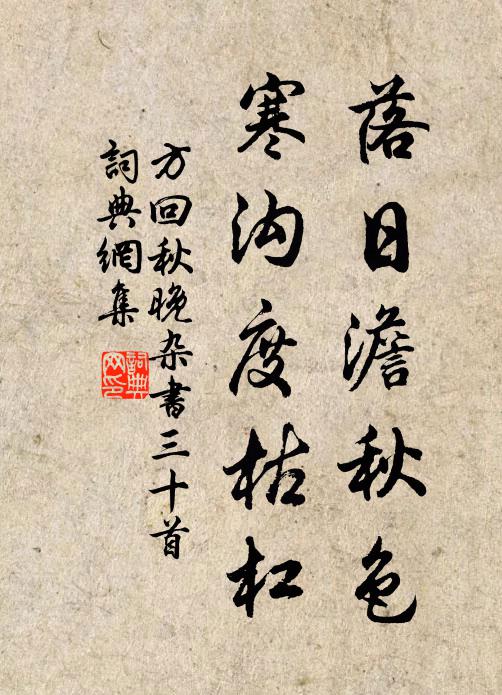 落日澹秋色
寒沟度枯杠
方回秋晚杂書三十首
詞典網集
詞典網印